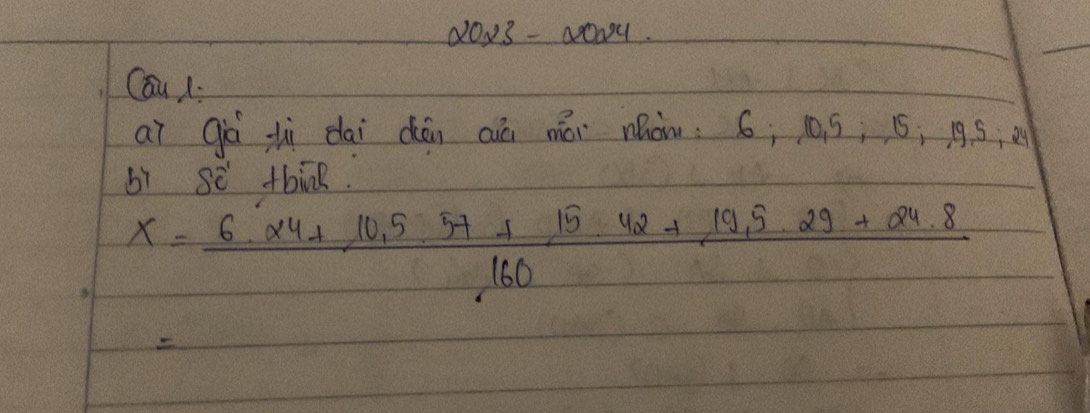 2023 - 2024.
Câu 1:
a) Giá trị đại diện của mỗi nhóm: 6; 10,5; 15; 19,5; 24
b) Số tbình.
X = 6.24+ 10,5.57 + 15.42 + 19,5.29 + 24.8
160
=